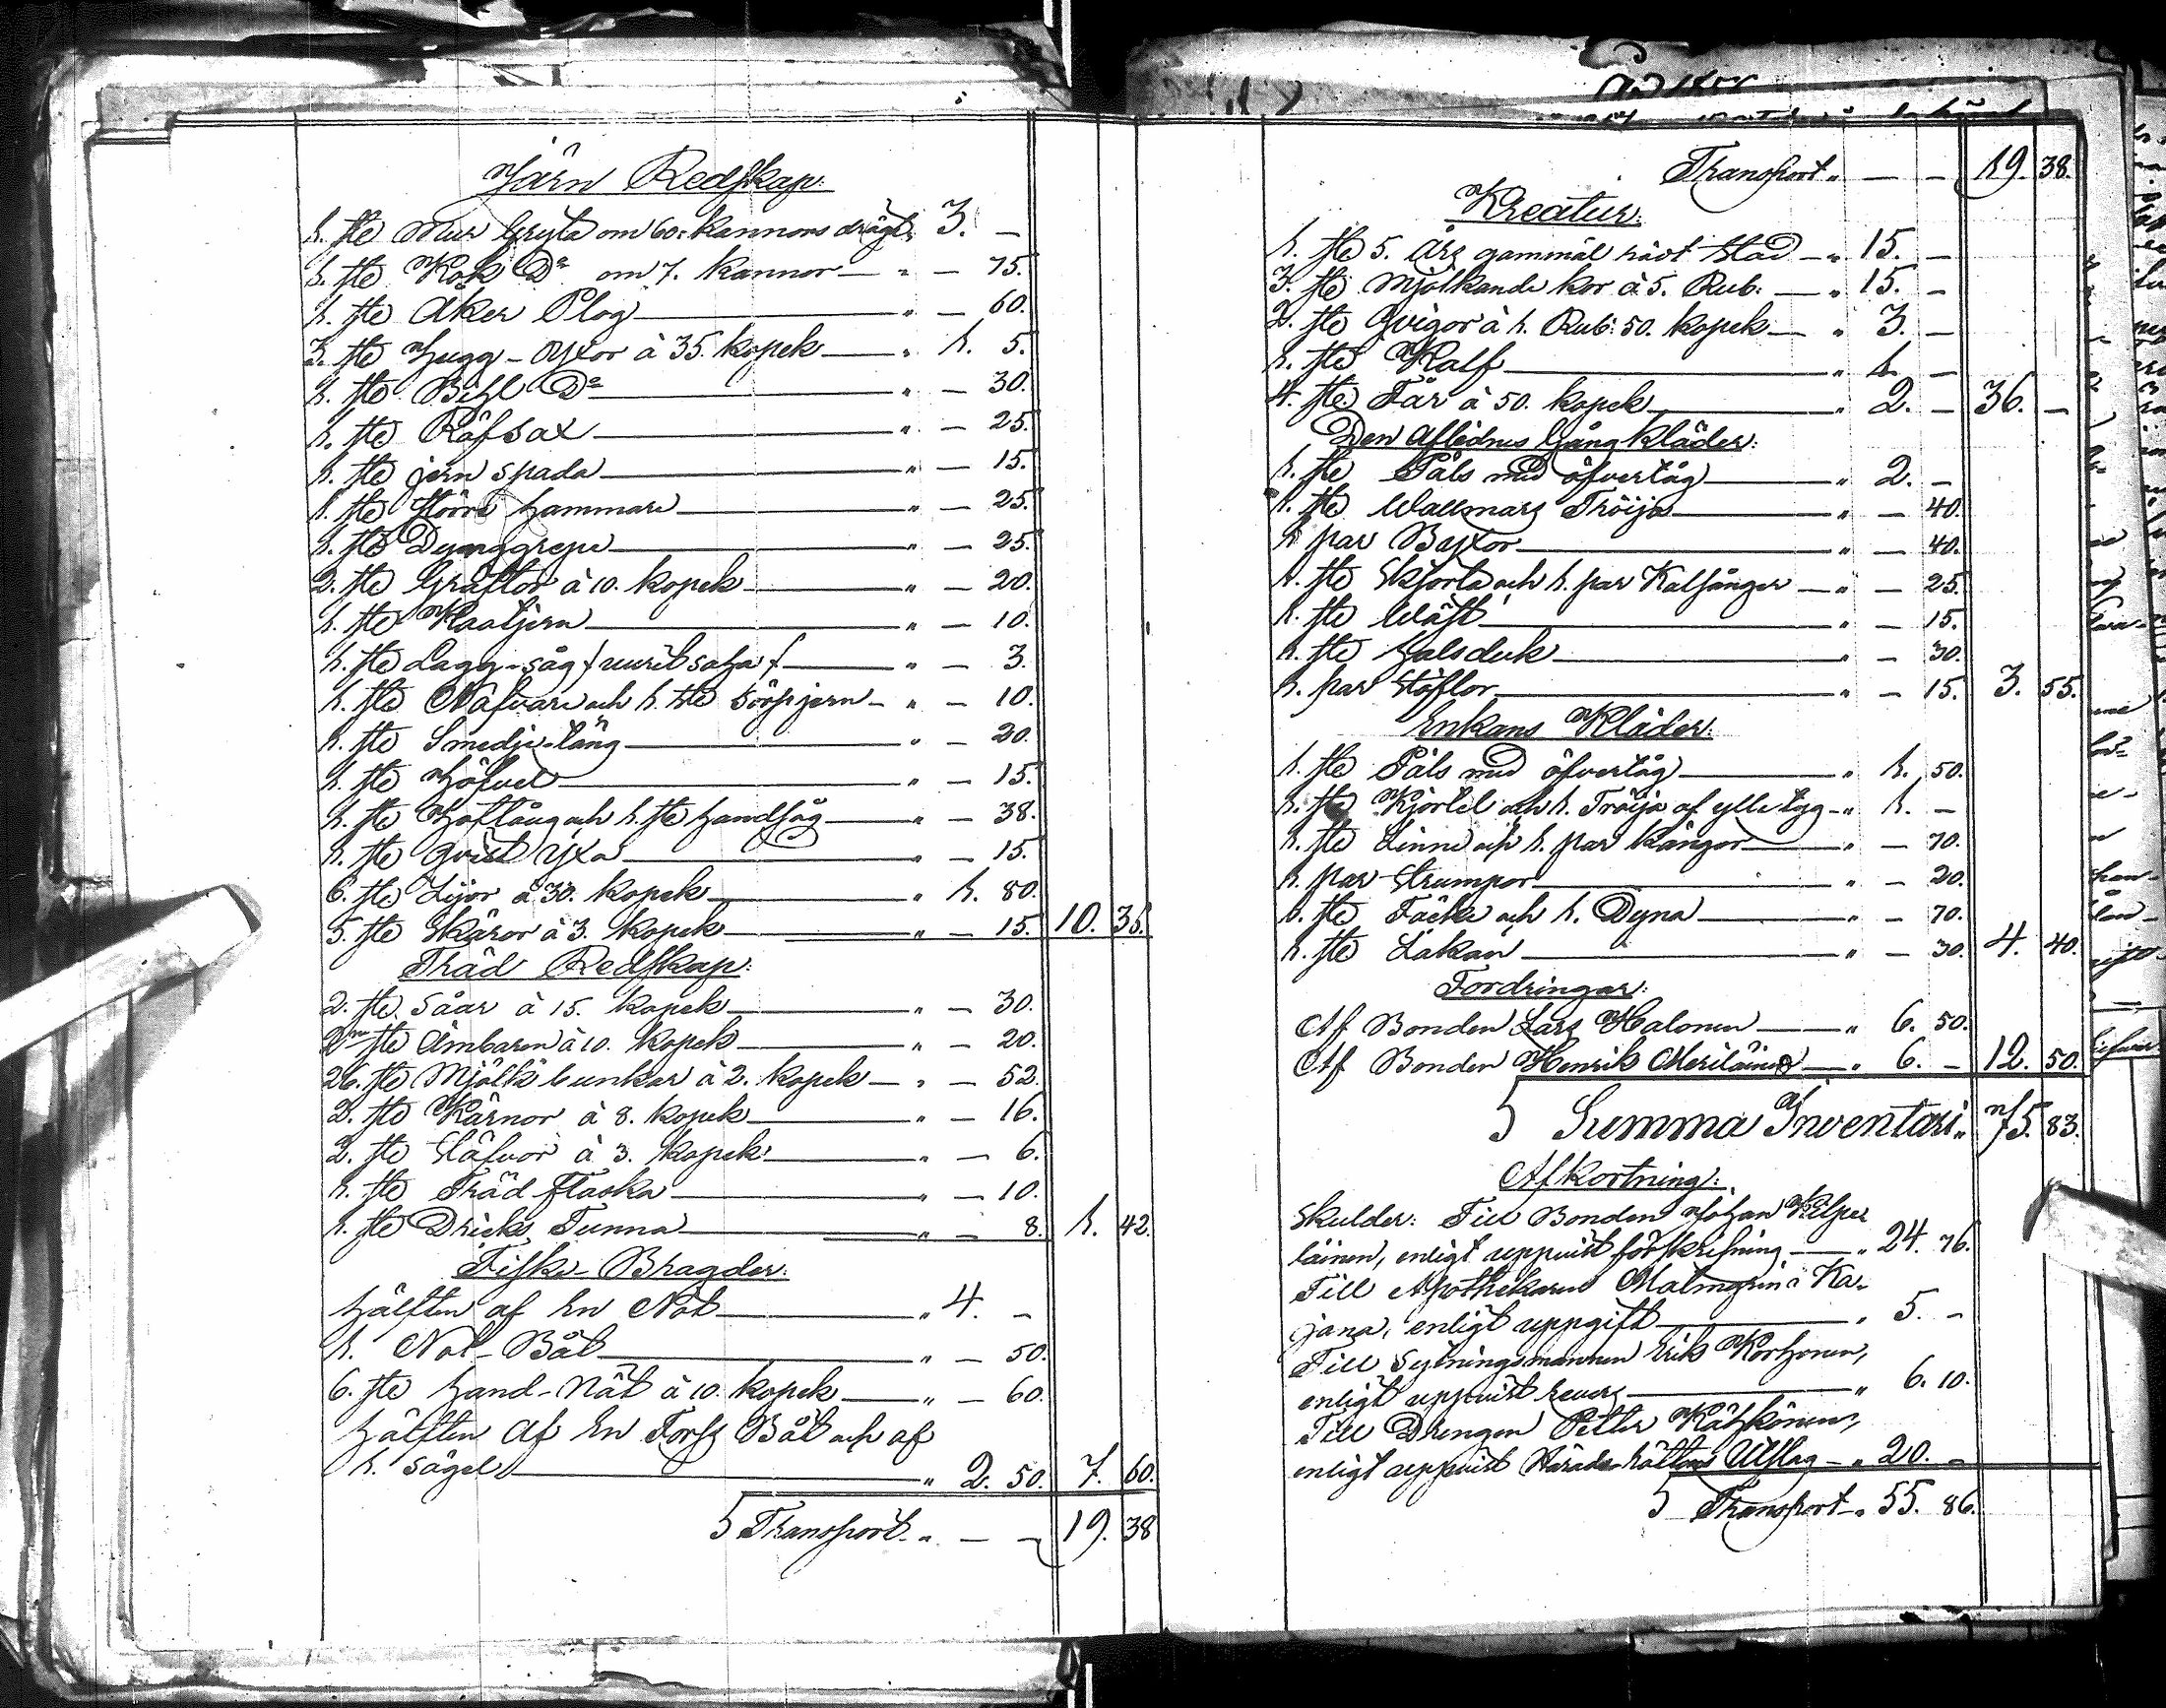 Järn Redskap:
1. st. Mur Gryta om 60. kannors drägt „ 3. –
1. st. Kok Do om 7. kannor – „ – 75.
1. st. Åker Plog – „ – 60.
3. st. Hugg-Yxor à 35. kopek – „ 1. 5.
1. st. Bihl Do – „ – 30.
1. st. Räfsax – „ – 25.
1. st. jern spada – „ – 15.
1. st. större hammare – „ – 25.
1. st. Dynggrepe – „ – 25.
2. st. Gräftor à 10. kopek – „ – 20.
1. st. – „ – 10.
1. st. Lagg-såg – „ – 3.
1. st. Nafvare och 1. st. jern – „ – 10.
1. st. Smedje-tång – „ – 20.
1. st. Höfvel – „ – 15.
1. st. Hoftång och 1. st. handsåg – „ – 38.
1. st. qvist Yxa – „ – 15.
6. st. Lijor à 30. kopek – „ 1. 80.
5. st. Skäror à 3. kopek – „ – 15. 10. 36.
Träd Redskap:
2. st. Såar à 15. kopek – „ – 30.
2. st. Ämbaren à 10. kopek – „ – 20.
26. st. Mjölk bunkar à 2. kopek – „ – 52.
2. st. Kärnor à 8. kopek – „ – 16.
2. st. Stäfvor à 3. kopek – „ – 6.
1. st. Träd flaska – „ – 10.
1. st. Dricks Tunna – „ – 8. 1. 42.
Fiske-Bragder:
hälften af en Not – „ 4. –
1. Not-Båt – „ – 50.
6. st. hand-Nät à 10. kopek – „ – 60.
hälften af en Forss Båt och af
1. Sägel – „ 2. 50. 7. 60.
S Transport „ – – 19. 38
Transport „ – – 19. 38.
Kreatur:
1. st. 5. års gammal rödt Stod – „ 15. –
3. st. Mjölkande kor à 5. Rub: – „ 15. –
2. st. Qvigor à 1. Rub: 50. kopek – „ 3. –
1. st. Kalf – „ 1. –
4. st. Får à 50. kopek – „ 2. – 36. –
Den Aflednes Gångkläder:
1. st. Päls med öfvertåg – „ 2. –
1. st. Wallmars Tröija – „ – 40.
1 par Byxor – „ – 40.
1. st. Skjorta och 1. par Kalsånger – „ – 25.
1. st. Wäst – „ – 15.
1. st. Halsduk – „ – 30.
1. par Stöflor – „ – 15. 3. 55.
Enkans Kläder:
1. st. Päls med öfvertåg – „ 1. 50.
1. st. Kjortel och 1. Tröija af ylle tyg – „ 1. –
1. st. Linne och 1. par kängor – „ – 70.
1. par Strumpor – „ – 20.
1. st. Täcke och 1. Dyna – „ – 70.
1. st. Lakan – „ – 30. 4. 40.
Fordringar:
Af Bonden Lars Halonen – „ 6. 50.
Af Bonden Henrik Meriläinen – „ 6. – 12. 50.
S Summa af Inventari „ 75. 83.
Afkortning:
Skulder: Till Bonden Johan Kilpe=
läinen, enligt uppvist förskrifning – „ 24. 76.
Till Apothekaren Malmgrén i Ka=
jana, enligt uppgift – „ 5. –
Till Sytningsmannen Erik Korhonen,
enligt uppvist revers – „ 6. 10.
Till Drengen Petter Kähkönen,
enligt uppvist Härads-Rättens Utslag – „ 20. –
S Transport „ 55. 86.